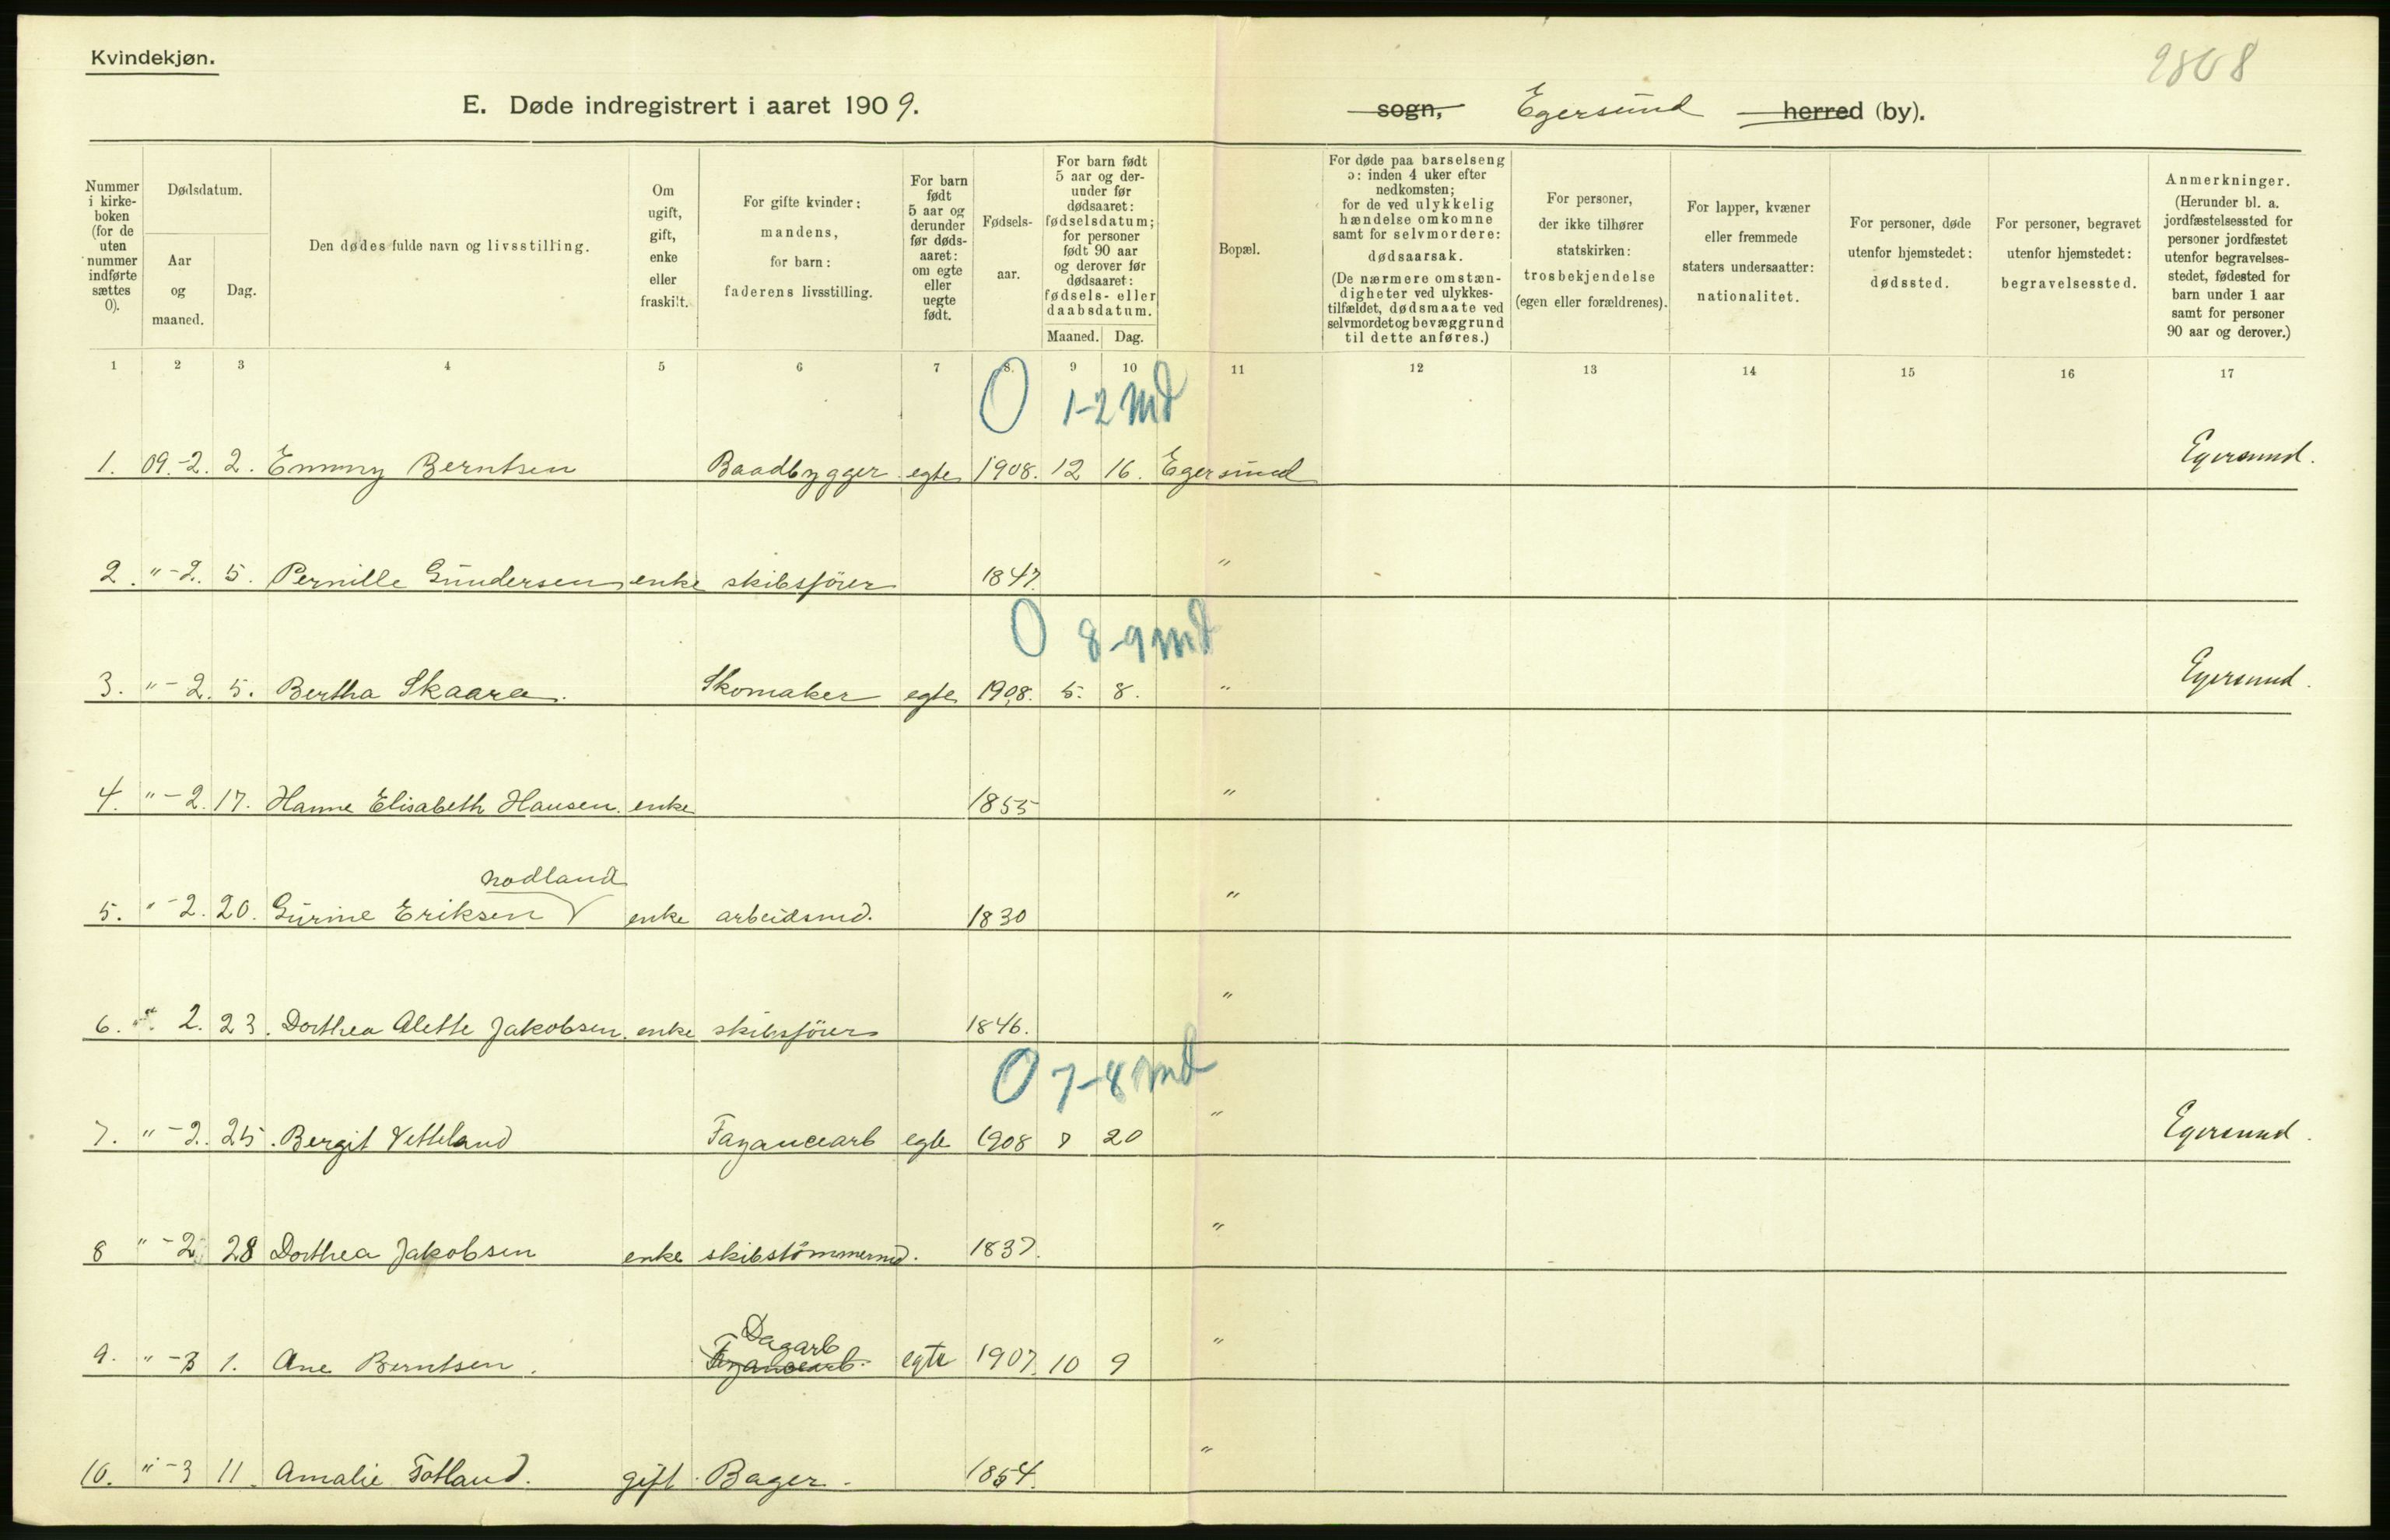 Kvindekjøn.
9808
E. Døde indregistrert i aaret 1909.
sogn, Egersund herred (by).
Nummer i kirkeboken (for de uten nummer indførte sættes 0).
Dødsdatum.
Aar og maaned.
Dag.
Den dødes fulde navn og livsstilling.
Om ugift, gift, enke eller fraskilt.
For gifte kvinder: mandens, for barn: faderens livsstilling.
For barn født 5 aar og derunder før dødsaaret: om egte eller uegte født.
Fødselsaar.
For barn født 5 aar og derunder før dødsaaret: fødselsdatum; for personer født 90 aar og derover før dødsaaret: fødsels- eller daabsdatum.
Maaned. Dag.
Bopæl.
For døde paa barselseng ɔ: inden 4 uker efter nedkomsten; for de ved ulykkelig hændelse omkomne samt for selvmordere: dødsaarsak. (De nærmere omstændigheter ved ulykkestilfældet, dødsmaate ved selvmordet og bevæggrund til dette anføres.)
For personer, der ikke tilhører statskirken: trosbekjendelse (egen eller forældrenes).
For lapper, kvæner eller fremmede staters undersaatter: nationalitet.
For personer, døde utenfor hjemstedet: dødssted.
For personer, begravet utenfor hjemstedet: begravelsessted.
Anmerkninger. (Herunder bl. a. jordfæstelsessted for personer jordfæstet utenfor begravelsesstedet, fødested for barn under 1 aar samt for personer 90 aar og derover.)
1 2 3 4 5 6 7 8. 9 10 11 12 13 14 15 16 17
0 1-2 Md
1. 09.-2. 2. Emmy Berntsen Baadbygger egte 1908. 12 16. Egersund Egersund.
2. "-2. 5. Pernille Gundersen enke skibsförer 1847. "
0 8-9 Md
3. "-2. 5. Bertha Skaara. Skomaker egte 1908. 5. 8. " Egersund.
4. "-2. 17. Hanne Elisabeth Hansen. enke 1855 "
nodland
5. "-2. 20. Gurine Eriksen V enke arbeidsmd. 1830 "
6. " 2. 23. Dorthea Alette Jakobsen. enke skibsförer 1846. "
0 7-8 Md
7. "-2. 25. Bergit Vetteland Fayancearb egte 1908 7 20 " Egersund.
8 "-2 28 Dorthea Jakobsen enke skibstömmermd. 1837. "
Dagarb
9. "-3 1. Ane Berntsen. Fayancearb. egte 1907. 10 9 "
10. "-3 11. Amalie Fotland. gift. Bager. 1854. "